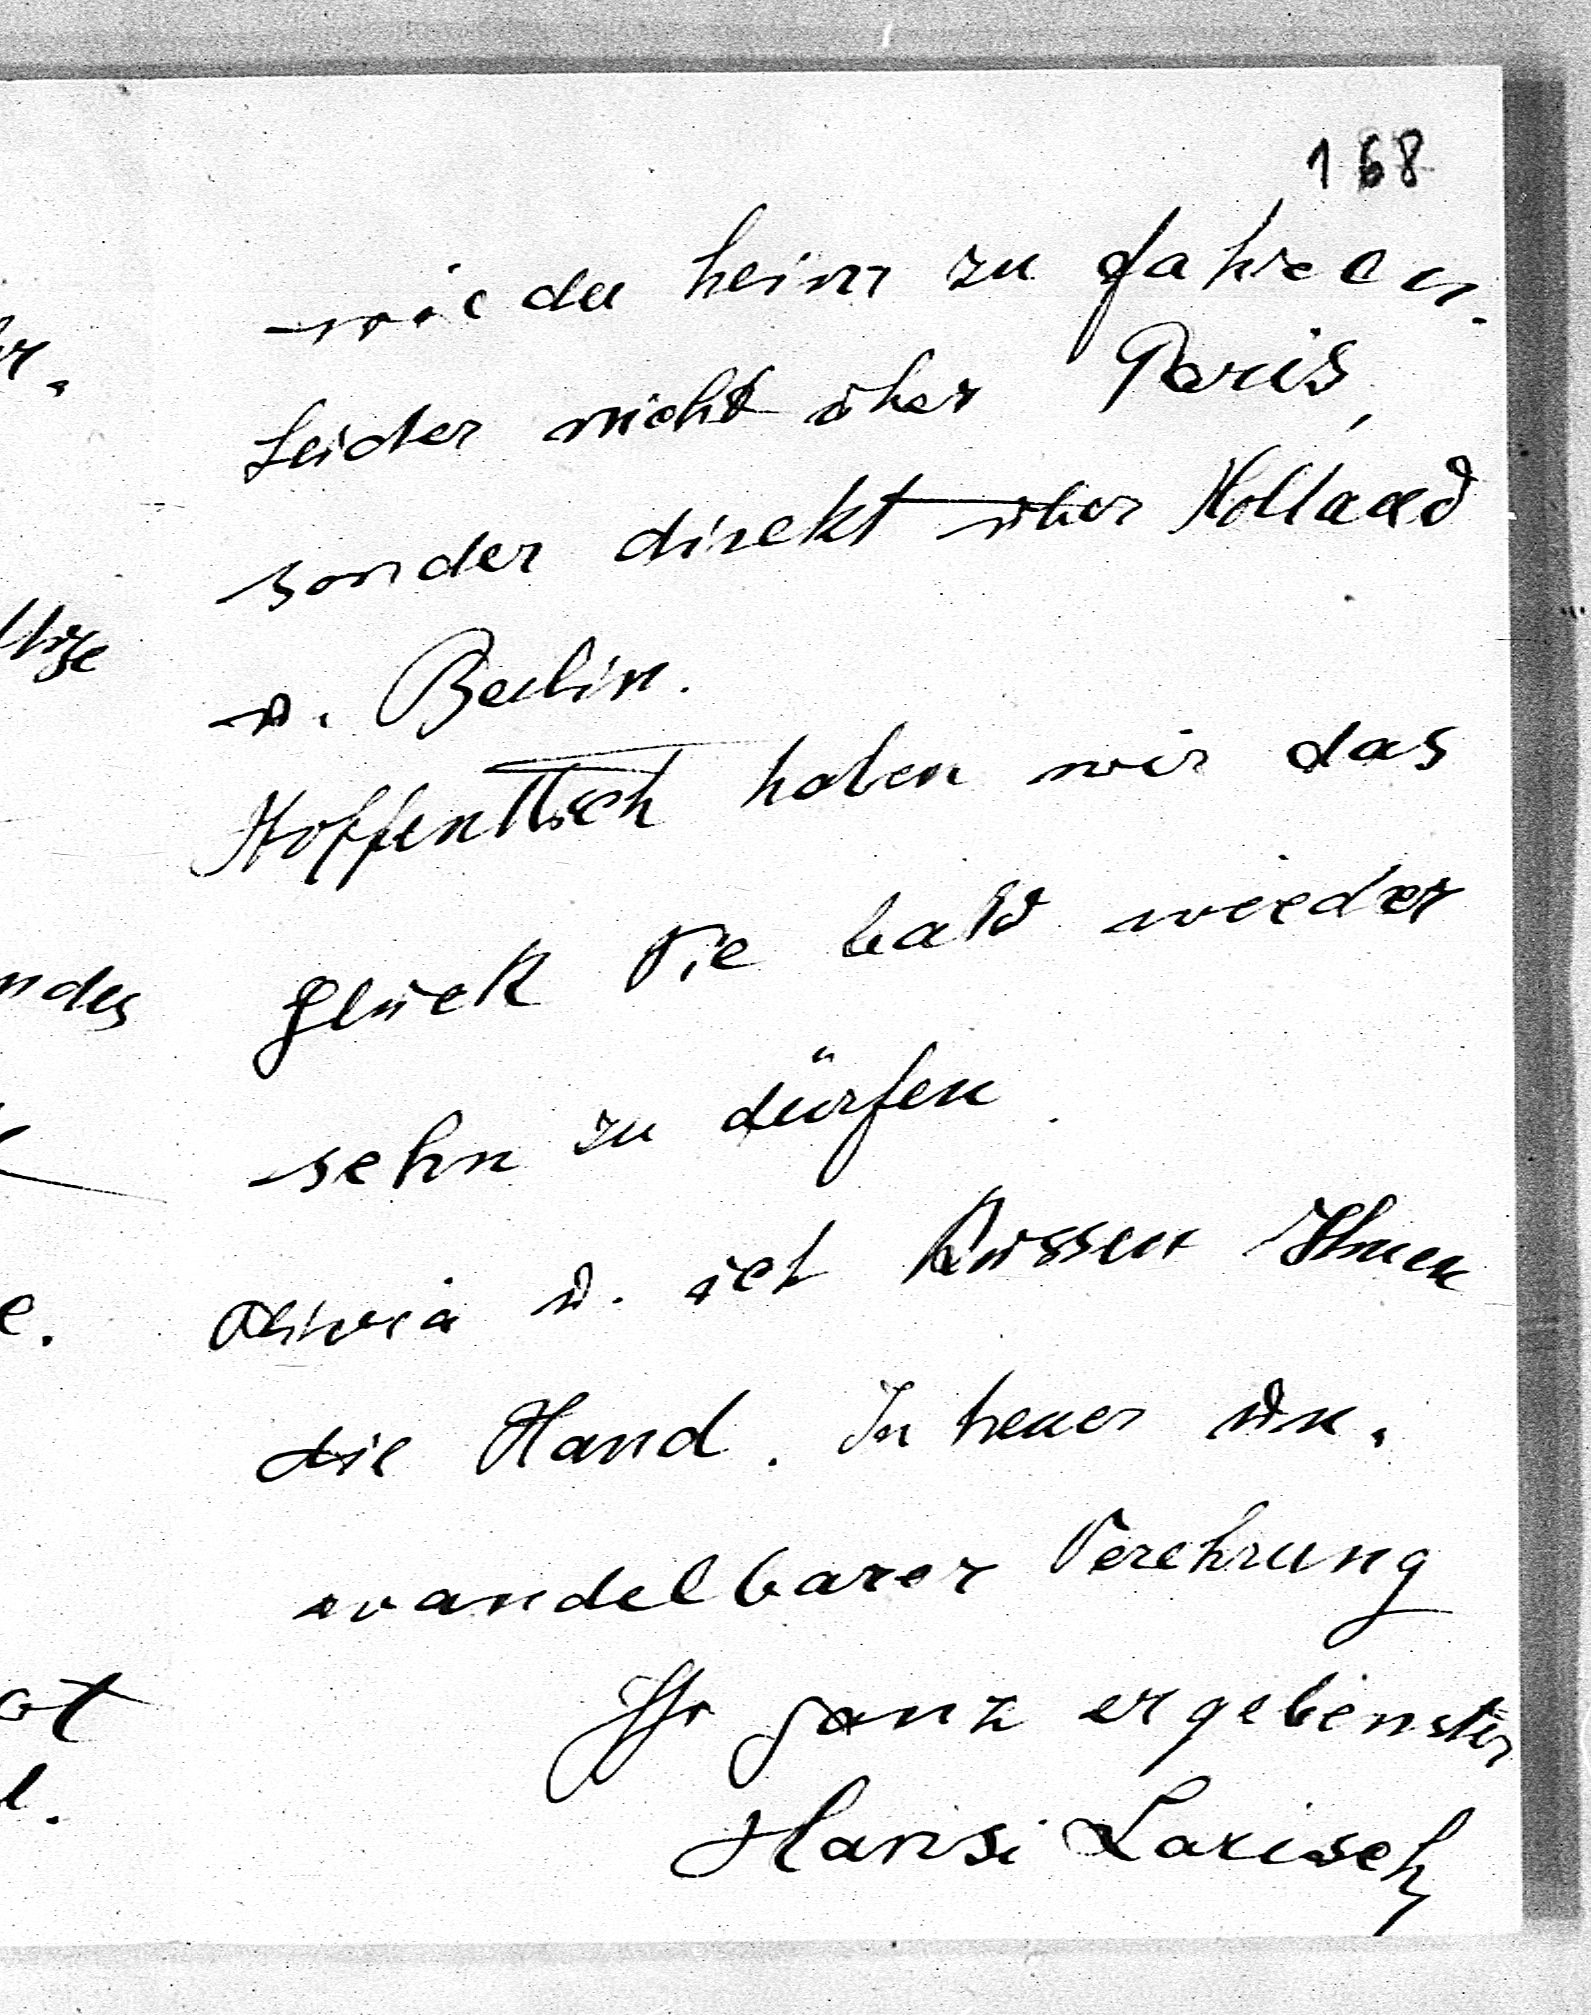 168
wieder heim zu fahren.
Leider nicht über Paris,
sonder direkt über Holland
u. Berlin.
Hoffentlich haben wir das
glück Sie bald wieder
sehn zu dürfen.
Olivia u. ich küssen Ihnen
die Hand. In treuer un-
wandelbarer Verehrung
Ihr ganz ergebenster
Hansi Larisch